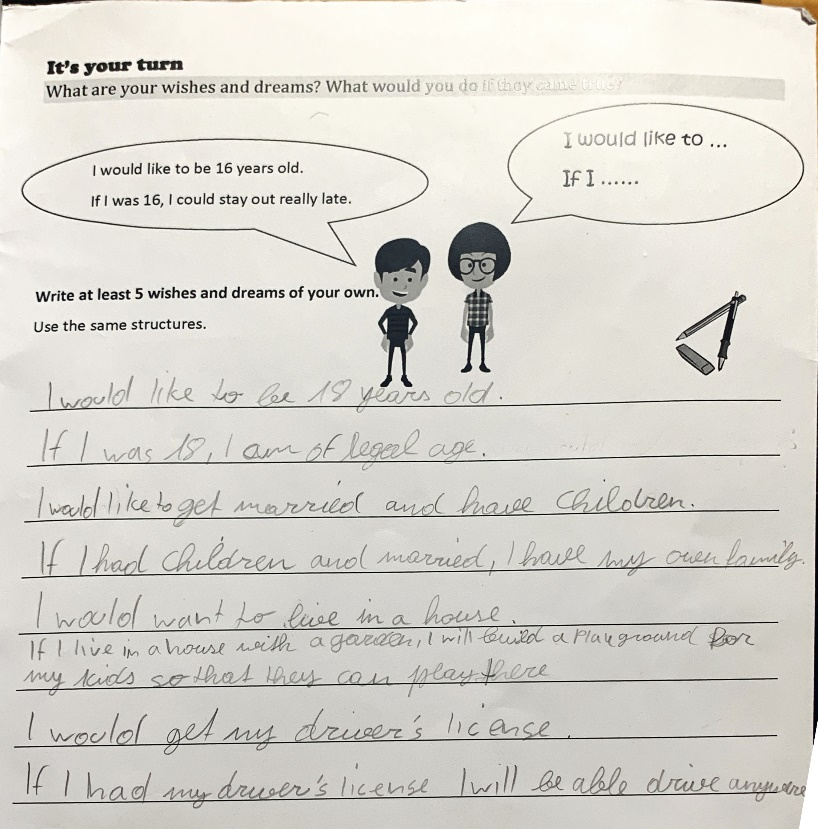 It's your turn
What are your wishes and dreams? What would you do if they came true?
I would like to be 16 years old.
If I was 16, I could stay out really late.
I would like to ...
If I ......
Write at least 5 wishes and dreams of your own.
Use the same structures.
I would like to be 18 years old.
If I was 18, I am of legal age.
I would like to get married and have children.
If I had children and married, I have my own family.
I would want to live in a house.
If I live in a house with a garden, I will build a playground for
my kids so that they can play there
I would get my driver's license.
If I had my driver's license I will be able drive anywere